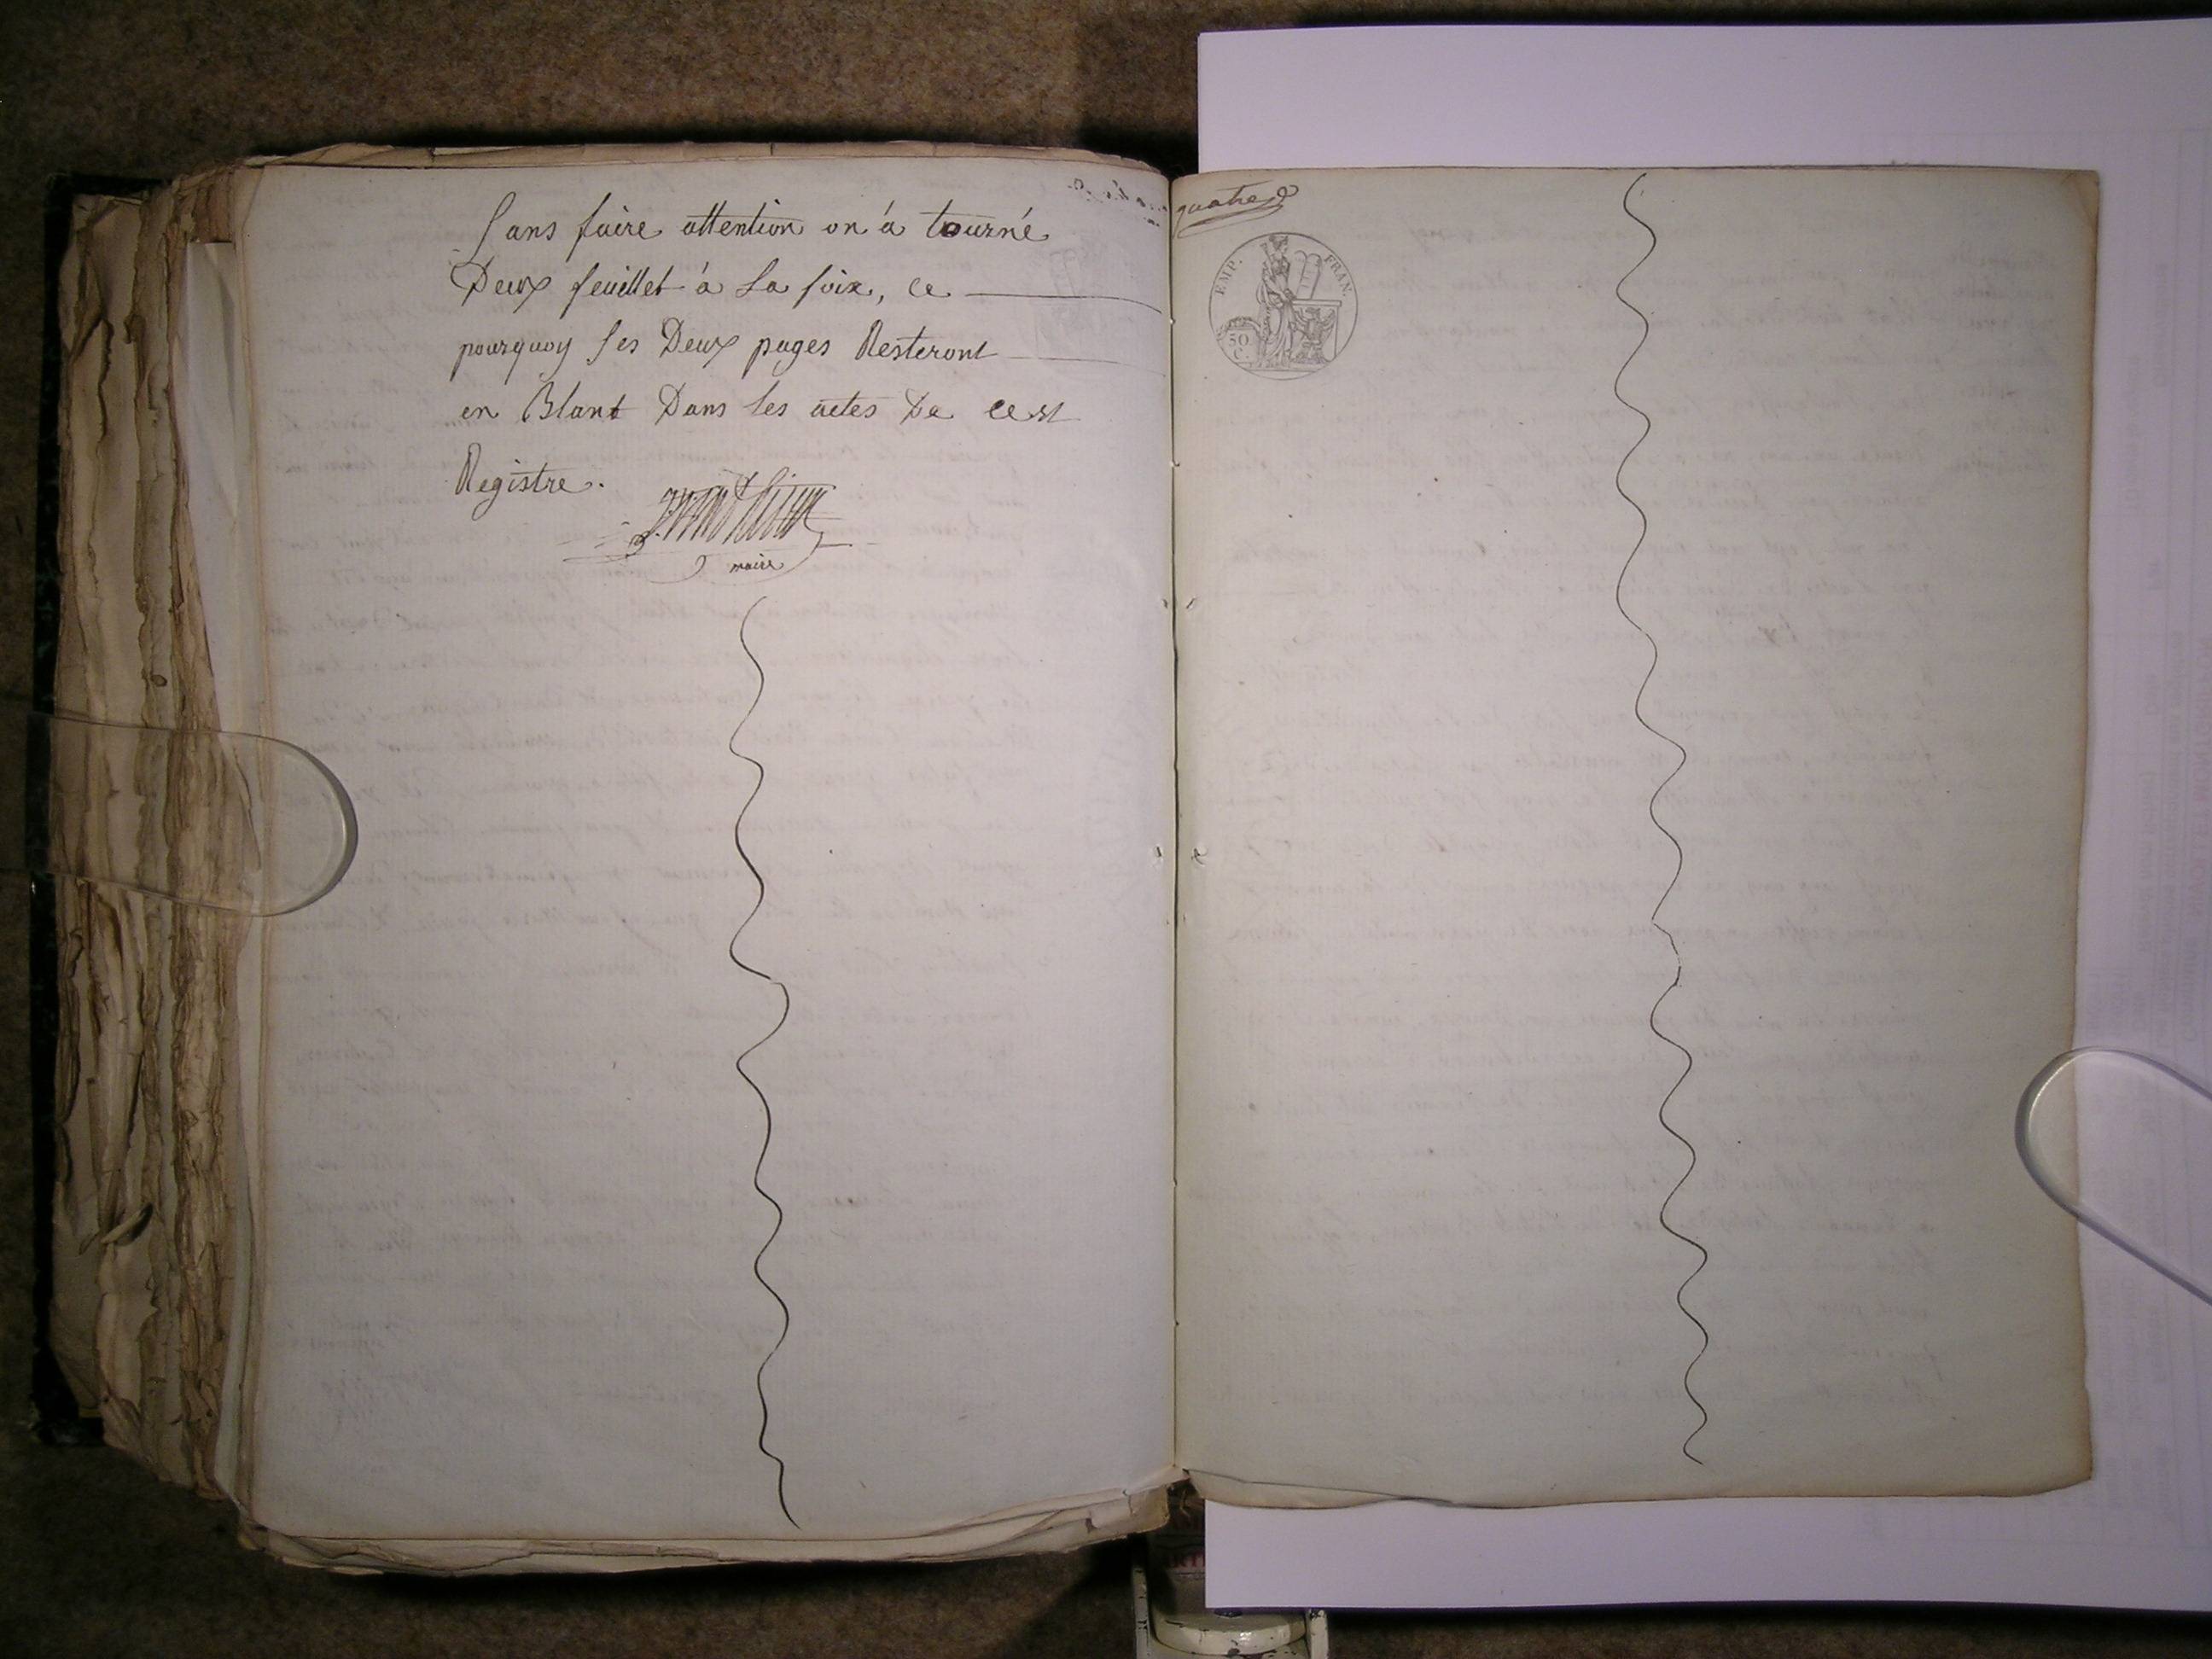 Sans faire attention on á tourné
Deux feuillet á La foix, ce
pourquoy ses Deux pages Resteront
en Blant Dans les actes De cest
Registre.
maire
quatre
EMP. FRAN.
50
C.